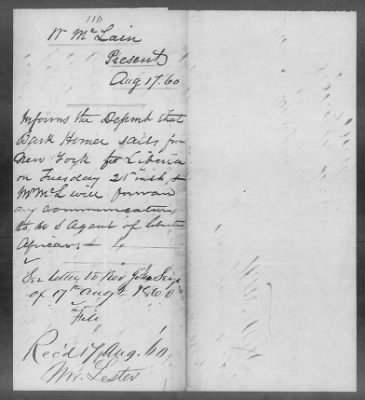 110
W McLain
Present
Aug 17. 60
Informs the Depmt that
Bark Homer sails from
New York for Liberia
on Tuesday 21st inst, &
Mr McL will forward
any communication
to U S Agent of
Africans
See letter to Rev John Seys
of 17th Augt 1860
File
Rec'd 17 Aug. 60
Mr. Lester